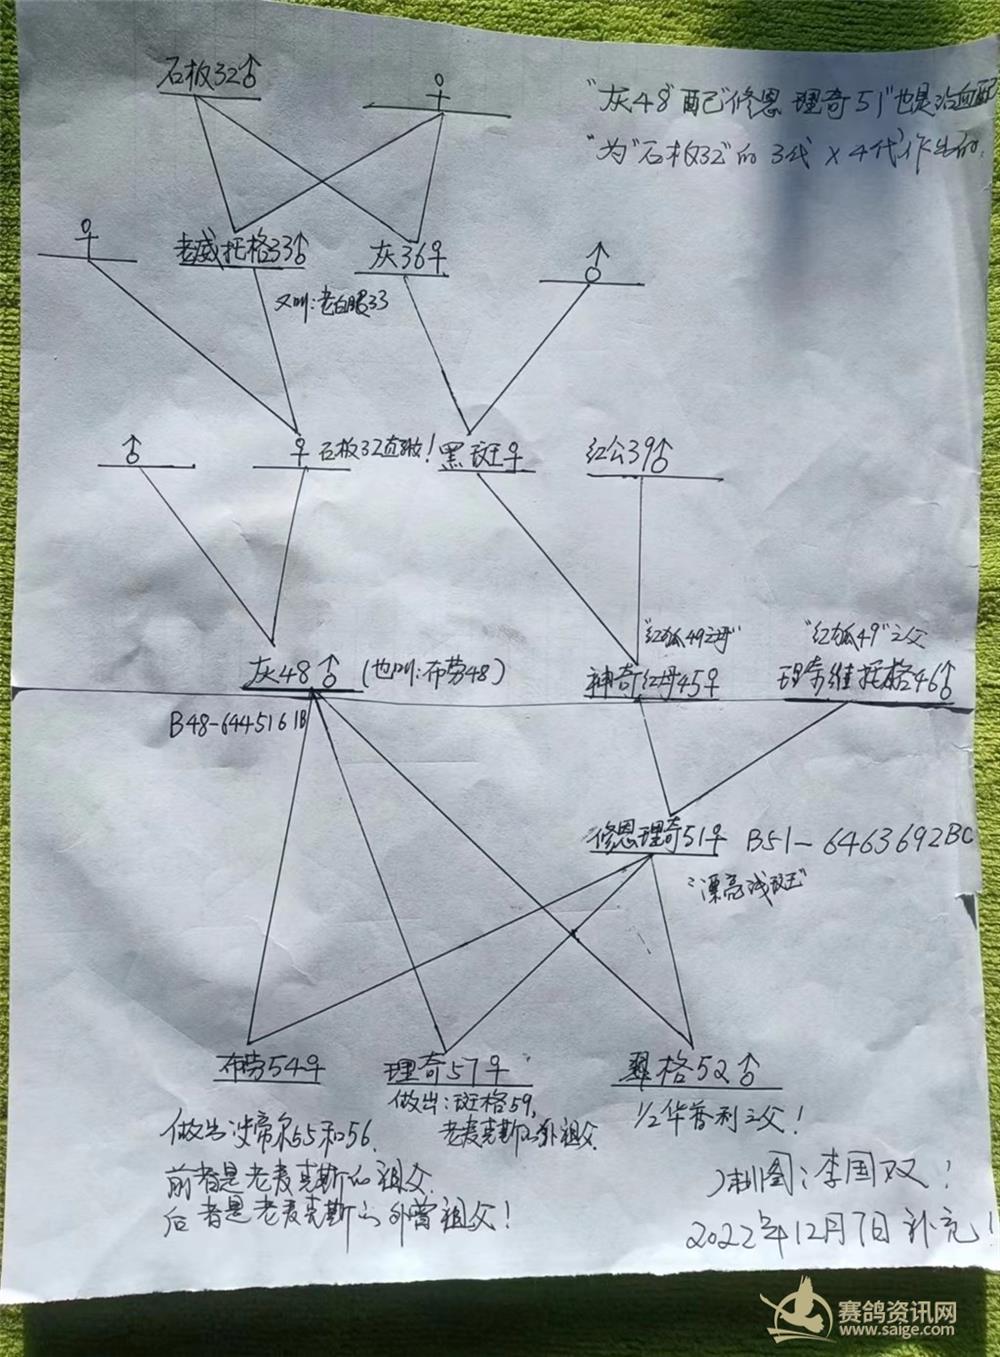 石板32♂
♀
"灰48"配"修恩理奇51"也是近血配
"为"石板32"的3代×4代作出的.
♀
老威托格33♂
灰36♀
♂
又叫:老白眼33
♂
♀
石板32直孙女!
黑斑♀
红公39♂
"红狐49之母"
"红狐49"之父
灰48♂
(也叫:布劳48)
神奇红母45♀
理奈维托格46♂
B48-6445161B
修恩理奇51♀
B51-6463692BC
"漂亮浅斑"
布劳54♀
理奇57♀
翠格52♂
做出:斑格59,
老麦克斯的外祖父.
1/2华普利之父!
做出波帝尔55和56.
前者是老麦克斯的祖父.
后者是老麦克斯的外曾祖父!
制图:李国双!
2022年12月7日补充!
赛鸽资讯网
www.saige.com